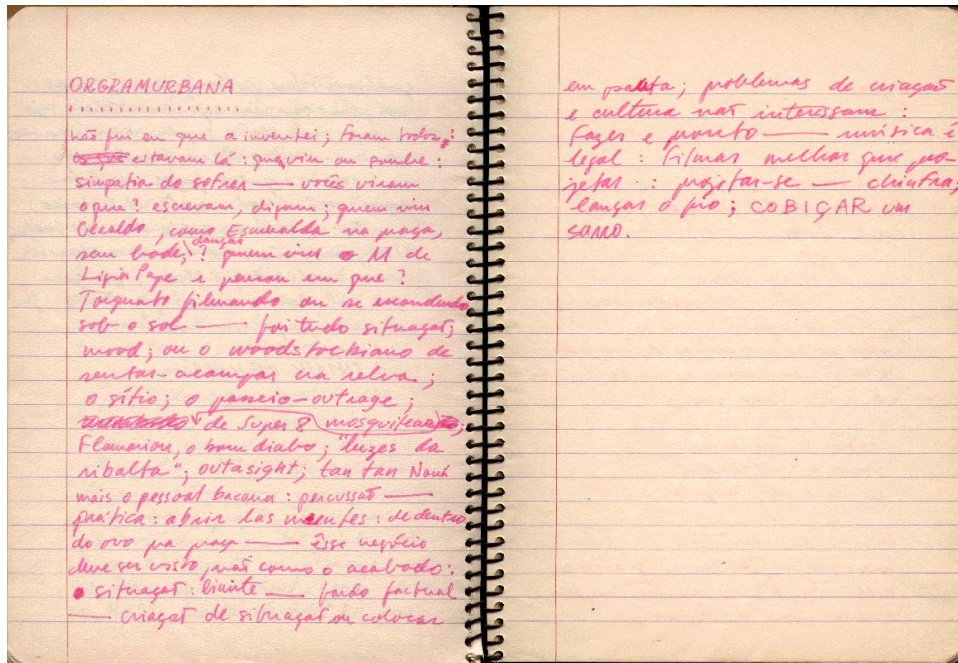 ORGRAMURBANA
não fui eu que a inventei; foram todos:
estavam lá: quem viu ou soube:
simpatia do sofrer — vocês viram
o que? escrevam, digam; quem viu
Geraldo, como Esmeralda na praça,
sem bode, dançar? quem viu o M de
Ligia Pape e pensou em que?
Torquato filmando ou se escondendo
sob o sol — foi tudo situação;
mood; ou o woodstockiano de
sentar-acampar na relva;
o sítio; o passeio-outrage;
de Super 8 mosquitear;
Flamarion, o bom diabo; "luzes da
ribalta"; outasight; tan tan Naná
mais o pessoal bacana: percussão —
prática: abrir las mentes: de dentro
do ovo pra praça — êsse negócio
deve ser visto, não como o acabado:
situação: limite — fardo factual
— criação de situação ou colocar
em pauta; problemas de criação
e cultura não interessam:
fazer e pronto — música é
legal: filmar melhor que pro-
jetar: projetar-se — chinfra;
lançar o fio; COBIÇAR um
SARRO.